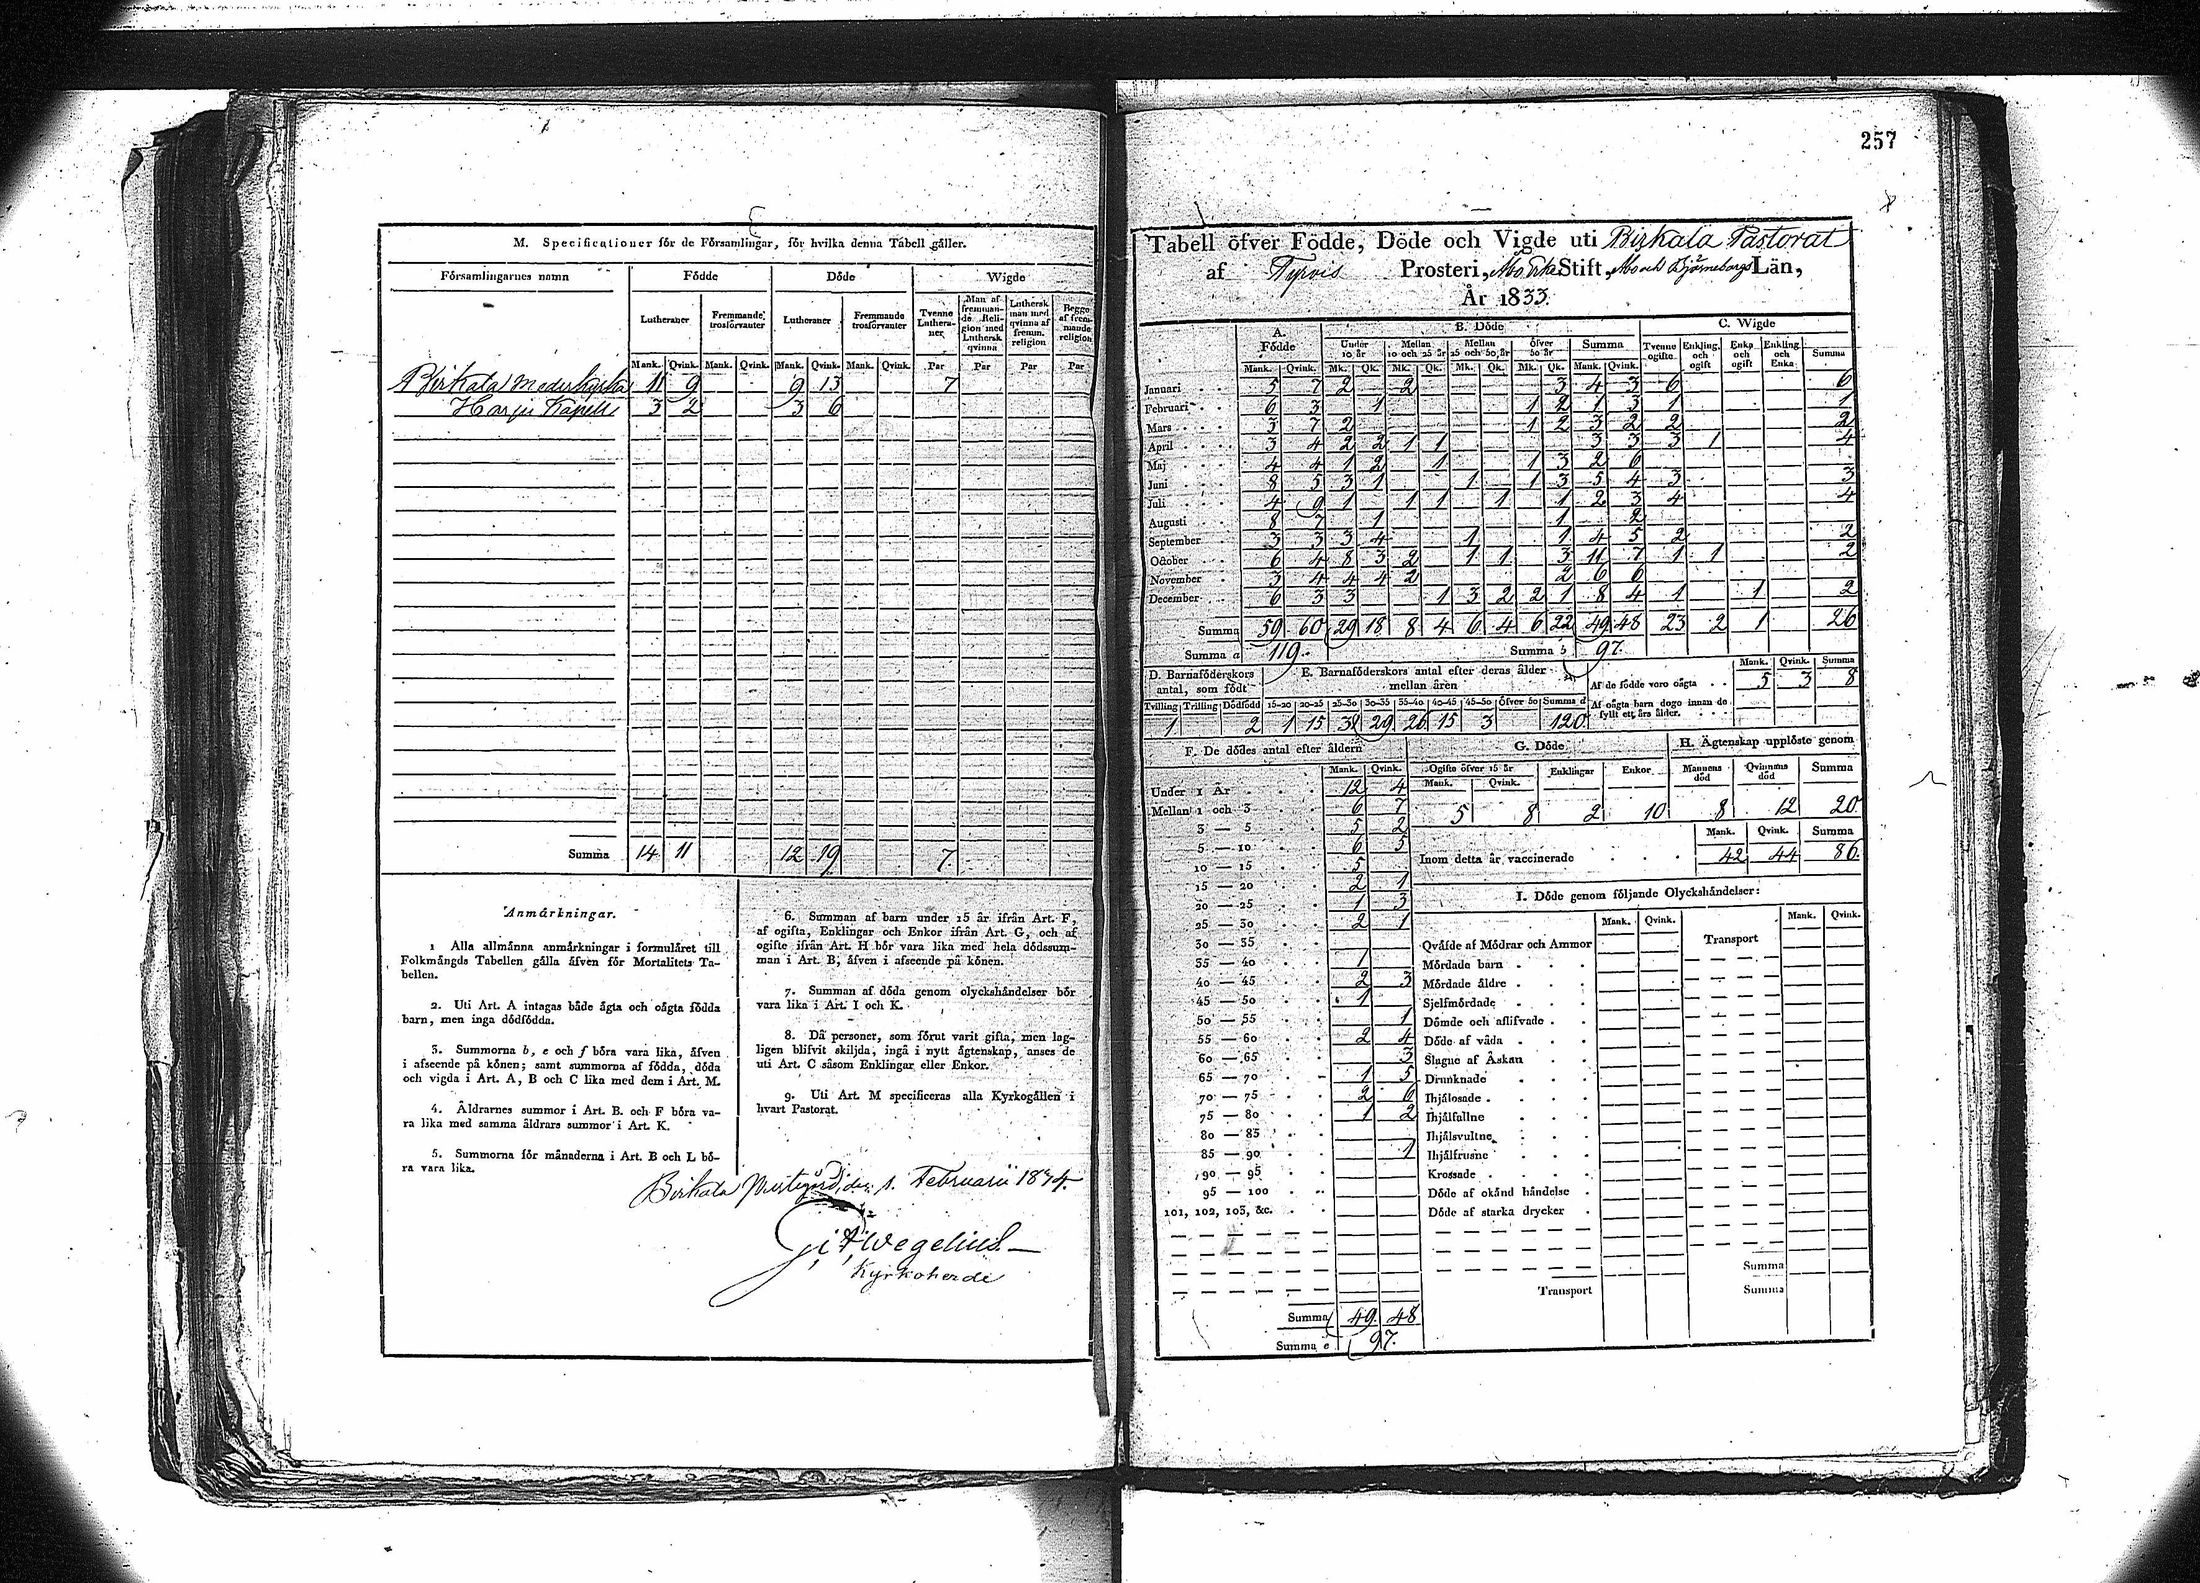 M. Specificationer för de Församlingar, för hvilka denna Tabell gäller.
Församlingarnes namn Födde Döde Wigde
Lutheraner Fremmande trosförvanter Lutheraner Fremmande trosförvanter Tvenne Lutheraner Man af fremmande Religion med Luthersk qvinna Luthersk man med qvinna af fremm. religion Begge af fremmande religion
Mank. Qvink. Mank. Qvink. Mank. Qvink. Mank. Qvink. Par Par Par Par
Birkala Moderkyrka 11 9 9 13 7
Harju Kapell 3 2 3 6
Summa 14 11 12 19 7
Anmärkningar.
1 Alla allmänna anmärkningar i formuläret till
Folkmängds Tabellen gälla äfven för Mortalitets Ta-
bellen.
2. Uti Art. A intagas både ägta och oägta födda
barn, men inga dödfödda.
3. Summorna b, e och f böra vara lika, äfven
i afseende på könen; samt summorna af födda, döda
och vigda i Art. A, B och C lika med dem i Art. M.
4. Äldrarnes summor i Art. B. och F böra va-
ra lika med samma åldrars summor i Art. K.
5. Summorna för månaderna i Art. B och L bö-
ra vara lika.
6. Summan af barn under 15 år ifrån Art. F,
af ogifta, Enklingar och Enkor ifrån Art. G, och af
ogifte ifrån Art. H bör vara lika med hela dödssum-
man i Art. B, äfven i afseende på könen.
7. Summan af döda genom olyckshändelser bör
vara lika i Art. I och K.
8. Då personer, som förut varit gifta, men lag-
ligen blifvit skiljda, ingå i nytt ägtenskap, anses de
uti Art. C såsom Enklingar eller Enkor.
9. Uti Art. M specificeras alla Kyrkogällen i
hvart Pastorat.
Birkala Prestegård den 1. Februarii 1834.
Wegelius
Kyrkoherde
257
Tabell öfver Födde, Döde och Vigde uti Birkala Pastorat
af Tyrvis Prosteri, Åbo Erke Stift, Åbo och Björneborgs Län,
År 1833.
A. Födde B. Döde C. Wigde
Under 10 år Mellan 10 och 25 år Mellan 25 och 50 år Öfver 50 år Summa Tvenne ogifte Enkling och ogift Enka och ogift Enkling och Enka Summa
Mank. Qvink. Mk. Qk. Mk. Qk. Mk. Qk. Mk. Qk. Mank. Qvink.
Januari 5 7 2 2 3 4 3 6 6
Februari 6 3 1 1 2 1 3 1 1
Mars 3 7 2 1 2 3 2 2 2
April 3 4 2 2 1 1 3 3 3 1 4
Maj 4 4 1 2 1 1 3 2 6
Juni 8 5 3 1 1 1 3 5 4 3 3
Juli 4 9 1 1 1 1 1 2 3 4 4
Augusti 8 7 1 1 2
September 3 3 3 4 1 1 4 5 2 2
October 6 4 8 3 2 1 1 3 11 7 1 1 2
November 3 4 4 4 2 2 6 6
December 6 3 3 1 3 2 2 1 8 4 1 1 2
Summa 59 60 29 18 8 4 6 4 6 22 49 48 23 2 1 26
Summa a 119. Summa b 97.
D. Barnaföderskors antal, som födt E. Barnaföderskors antal efter deras ålder mellan åren Mank. Qvink. Summa
Af de födde voro oägta 5 3 8
Af oägta barn dogo innan de fyllt ett års ålder.
Tvilling Trilling Dödfödd 15-20 20-25 25-30 30-35 35-40 40-45 45-50 Öfver 50 Summa d
1 2 1 15 31 29 26 15 3 120.
F. De dödes antal efter åldern G. Döde H. Ägtenskap upplöste genom
Mank. Qvink. Ogifte öfver 15 år Enklingar Enkor Mannens död Qvinnans död Summa
Mank. Qvink.
5 8 2 10 8 12 20
Mank. Qvink. Summa
Inom detta år vaccinerade 42 44 86.
Under 1 År 12 4
Mellan 1 och 3 6 7
3 — 5 5 2
5 — 10 6 5
10 — 15 5
15 — 20 2 1
20 — 25 1 3
25 — 30 2 1
30 — 35
35 — 40 1
40 — 45 2 3
45 — 50 1
50 — 55 1
55 — 60 2 4
60 — 65 3
65 — 70 1 5
70 — 75 2 6
75 — 80 1 2
80 — 85
85 — 90 1
90 — 95
95 — 100
101, 102, 103, &c.
Summa 49 48
Summa e 97.
I. Döde genom följande Olyckshändelser:
Mank. Qvink. Mank. Qvink.
Qväfde af Mödrar och Ammor Transport
Mördade barn
Mördade äldre
Sjelfmördade
Dömde och aflifvade
Döde af våda
Slagne af Åskan
Drunknade
Ihjälosade
Ihjälfallne
Ihjälsvultne
Ihjälfrusne
Krossade
Döde af okänd händelse
Döde af starka drycker
Summa
Transport Summa